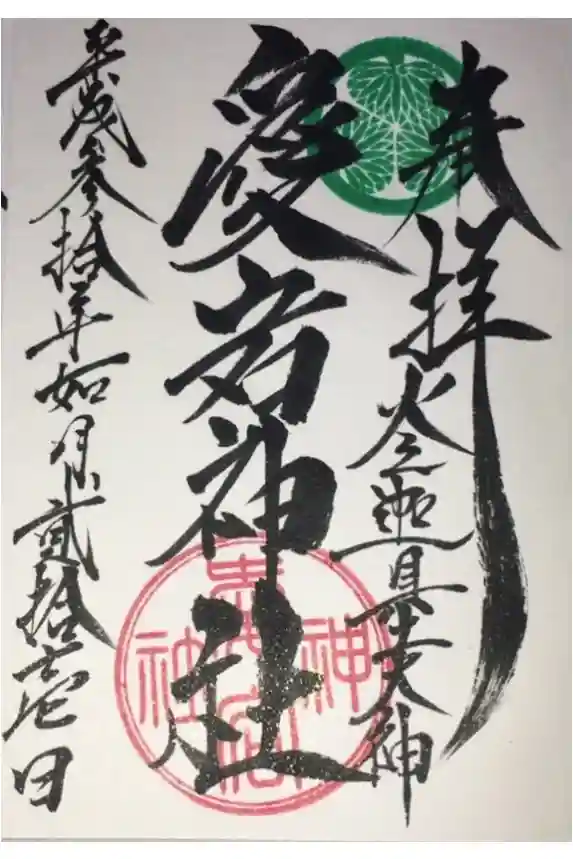 奉拝
火之迦具土大神
愛宕神社
愛宕神社
平成参拾年如月貳拾壱日